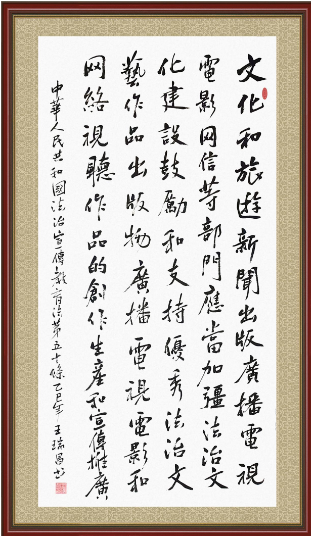 文化和旅遊新聞出版廣播電視
電影网信等部門應當加疆法治文
化建設鼓勵和支持優秀法治文
藝作品出版物廣播電視電影和
网絡視聽作品的創作生產和宣傳推廣
中華人民共和國法治宣傳教育法第五十條乙巳年王瑞書